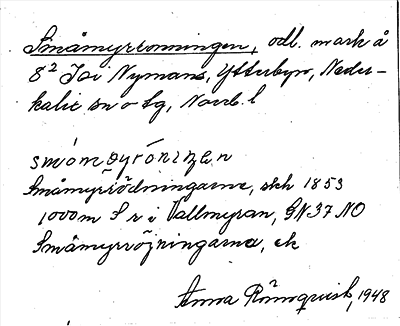 Småmyrronningen, odl. mark å
8² Joi Nymans, Ytterbyn, Neder-
kalix sn o tg, Norrb. l
Småmyrrödningarna, skh 1853
1000 m S r i Vallmyran, GN 37 NO
Småmyrröjningarna, ek
Anna Rönnqvist, 1948